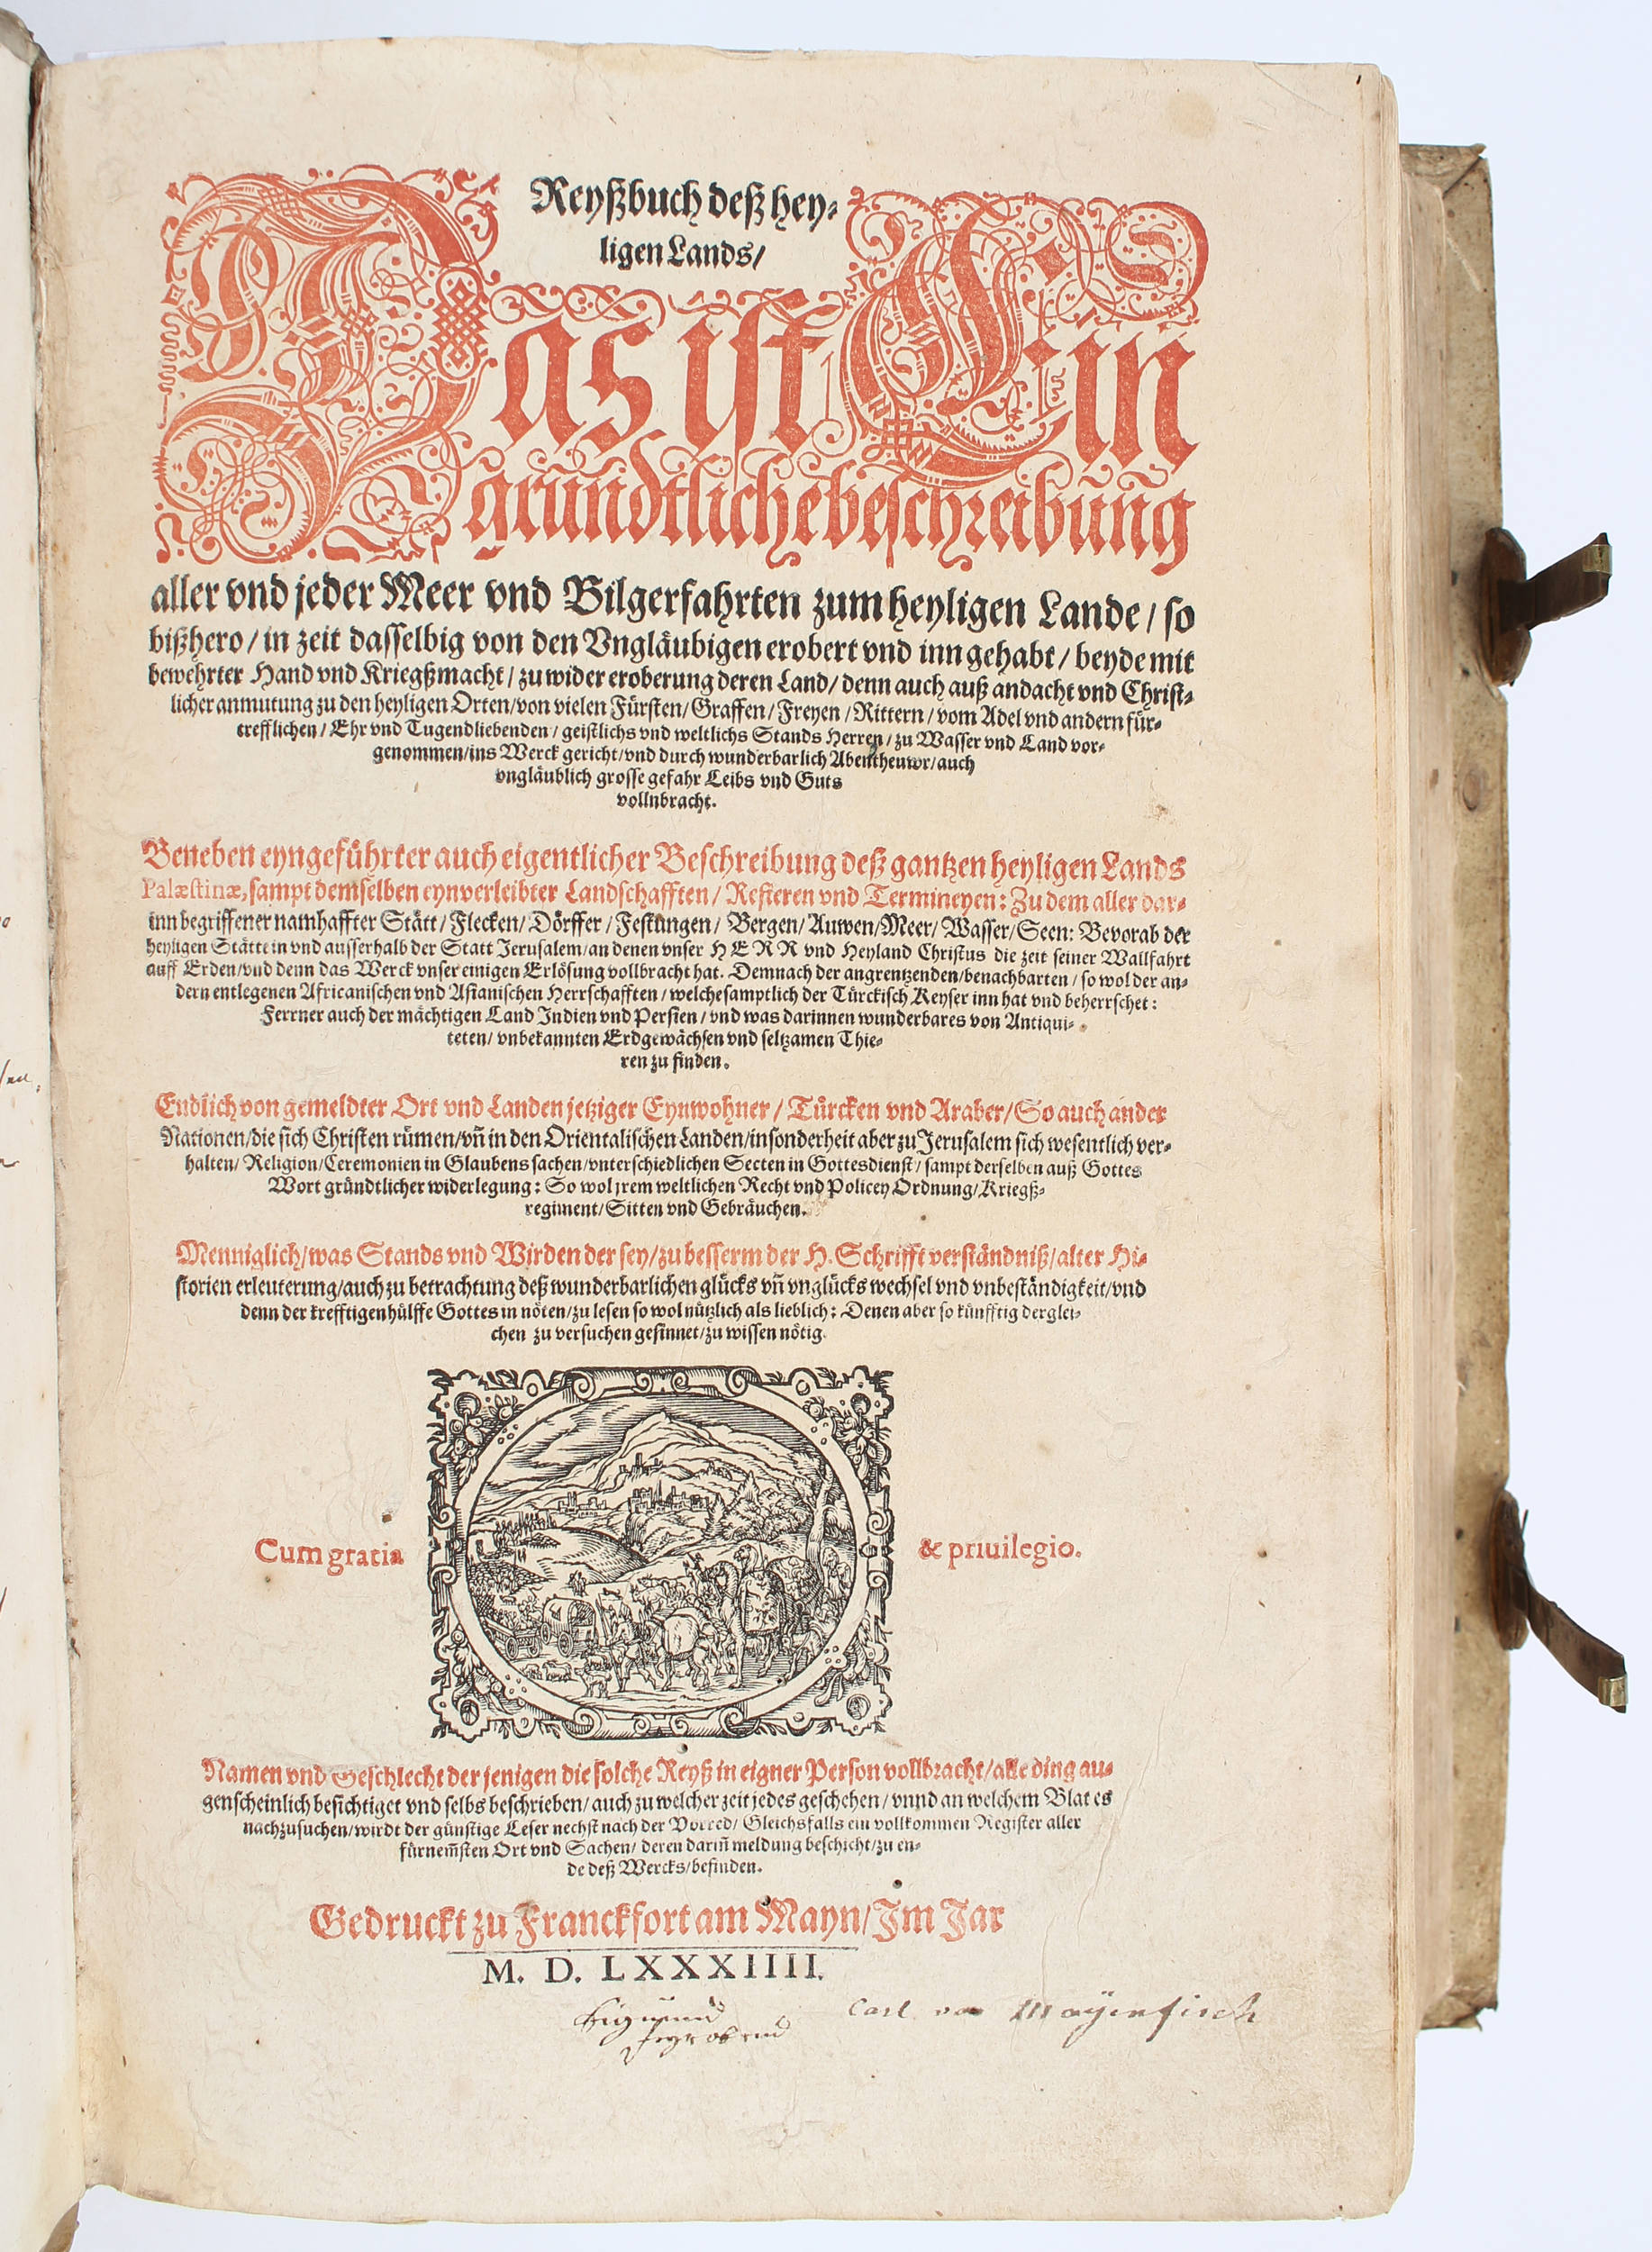 Reyßbuch deß hey⸗
ligen Lands/
Das ist Ein
gründtliche beschreibung
aller vnd jeder Meer vnd Bilgerfahrten zum heyligen Lande / so
bißhero / in zeit dasselbig von den Vngläubigen erobert vnd inn gehabt / beyde mit
bewehrter Hand vnd Kriegßmacht / zu wider eroberung deren Land / denn auch auß andacht vnd Christ⸗
licher anmutung zu den heyligen Orten/von vielen Fürsten/ Graffen / Freyen / Rittern / vom Adel vnd andern für⸗
trefflichen / Ehr vnd Tugendliebenden / geistlichs vnd weltlichs Stands Herren / zu Wasser vnd Land vor⸗
genommen/ins Werck gericht/vnd durch wunderbarlich Abentheuwr/auch
vngläublich grosse gefahr Leibs vnd Guts
vollnbracht.
Beneben eyngeführter auch eigentlicher Beschreibung deß gantzen heyligen Lands
Palæstinæ, sampt demselben eynverleibter Landschafften / Refieren vnd Termineyen: Zu dem aller dar⸗
inn begriffener namhaffter Stätt / Flecken / Dörffer / Festungen / Bergen / Auwen/Meer/ Wasser/Seen: Bevorab der
heyligen Stätte in vnd ausserhalb der Statt Jerusalem/an denen vnser HERR vnd Heyland Christus die zeit seiner Wallfahrt
auff Erden/vnd denn das Werck vnser einigen Erlösung vollbracht hat. Demnach der angrentzenden/benachbarten / so wol der an⸗
dern entlegenen Africanischen vnd Asianischen Herrschafften / welche samptlich der Türckisch Keyser inn hat vnd beherrschet:
Ferrner auch der mächtigen Land Indien vnd Persien / vnd was darinnen wunderbares von Antiqui⸗
teten/ vnbekannten Erdgewächsen vnd seltzamen Thie⸗
ren zu finden.
Endlich von gemeldter Ort vnd Landen jetziger Eynwohner / Türcken vnd Araber/ So auch ander
Nationen/die sich Christen rümen/vñ in den Orientalischen Landen/insonderheit aber zu Jerusalem sich wesentlich ver⸗
halten/ Religion/Ceremonien in Glaubens sachen/vnterschiedlichen Secten in Gottesdienst / sampt derselben auß Gottes
Wort gründtlicher widerlegung: So wol jrem weltlichen Recht vnd Policey Ordnung/Kriegß⸗
regiment/Sitten vnd Gebräuchen.
Menniglich/was Stands vnd Wirden der sey/zu besserm der H. Schrifft verständniß/alter Hi⸗
storien erleuterung/auch zu betrachtung deß wunderbarlichen glücks vñ vnglücks wechsel vnd vnbeständigkeit/vnd
denn der krefftigen hülffe Gottes in nöten/zu lesen so wol nützlich als lieblich: Denen aber so künfftig derglei⸗
chen zu versuchen gesinnet/zu wissen nötig.
Cum gratia & priuilegio.
Namen vnd Geschlecht der jenigen die solche Reyß in eigner Person vollbracht/alle ding au⸗
genscheinlich besichtiget vnd selbs beschrieben/auch zu welcher zeit jedes geschehen / vnnd an welchem Blat es
nachzusuchen/wirdt der günstige Leser nechst nach der Vorred/ Gleichsfalls ein vollkommen Register aller
fürnem̃sten Ort vnd Sachen/ deren darin̄ meldung beschicht/zu en⸗
de deß Wercks/befinden.
Gedruckt zu Franckfort am Mayn/Im Jar
M. D. LXXXIIII.
Sigmund
Feyrabend
Carl von Mayenfisch